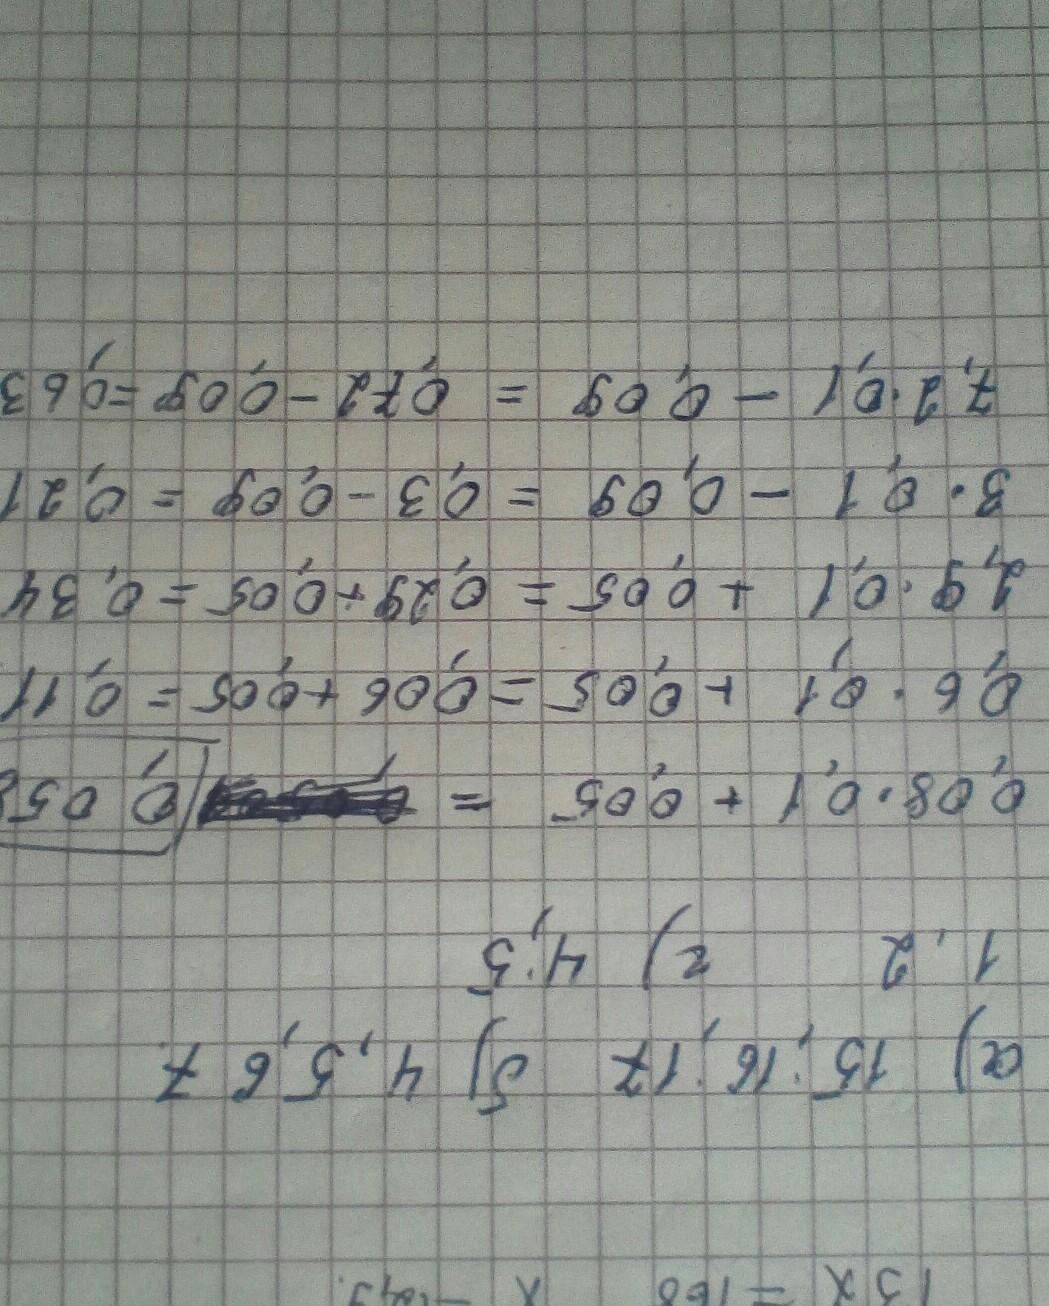 13x = 168 x
а) 15, 16, 17 б) 4, 5, 6 7
1, 2 г) 4, 5
0,08 · 0,1 + 0,05 = 0,058
0,6 · 0,1 + 0,05 = 0,06 + 0,05 = 0,11
2,9 · 0,1 + 0,05 = 0,29 + 0,05 = 0,34
3 · 0,1 - 0,09 = 0,3 - 0,09 = 0,21
7,2 · 0,1 - 0,09 = 0,72 - 0,09 = 0,63